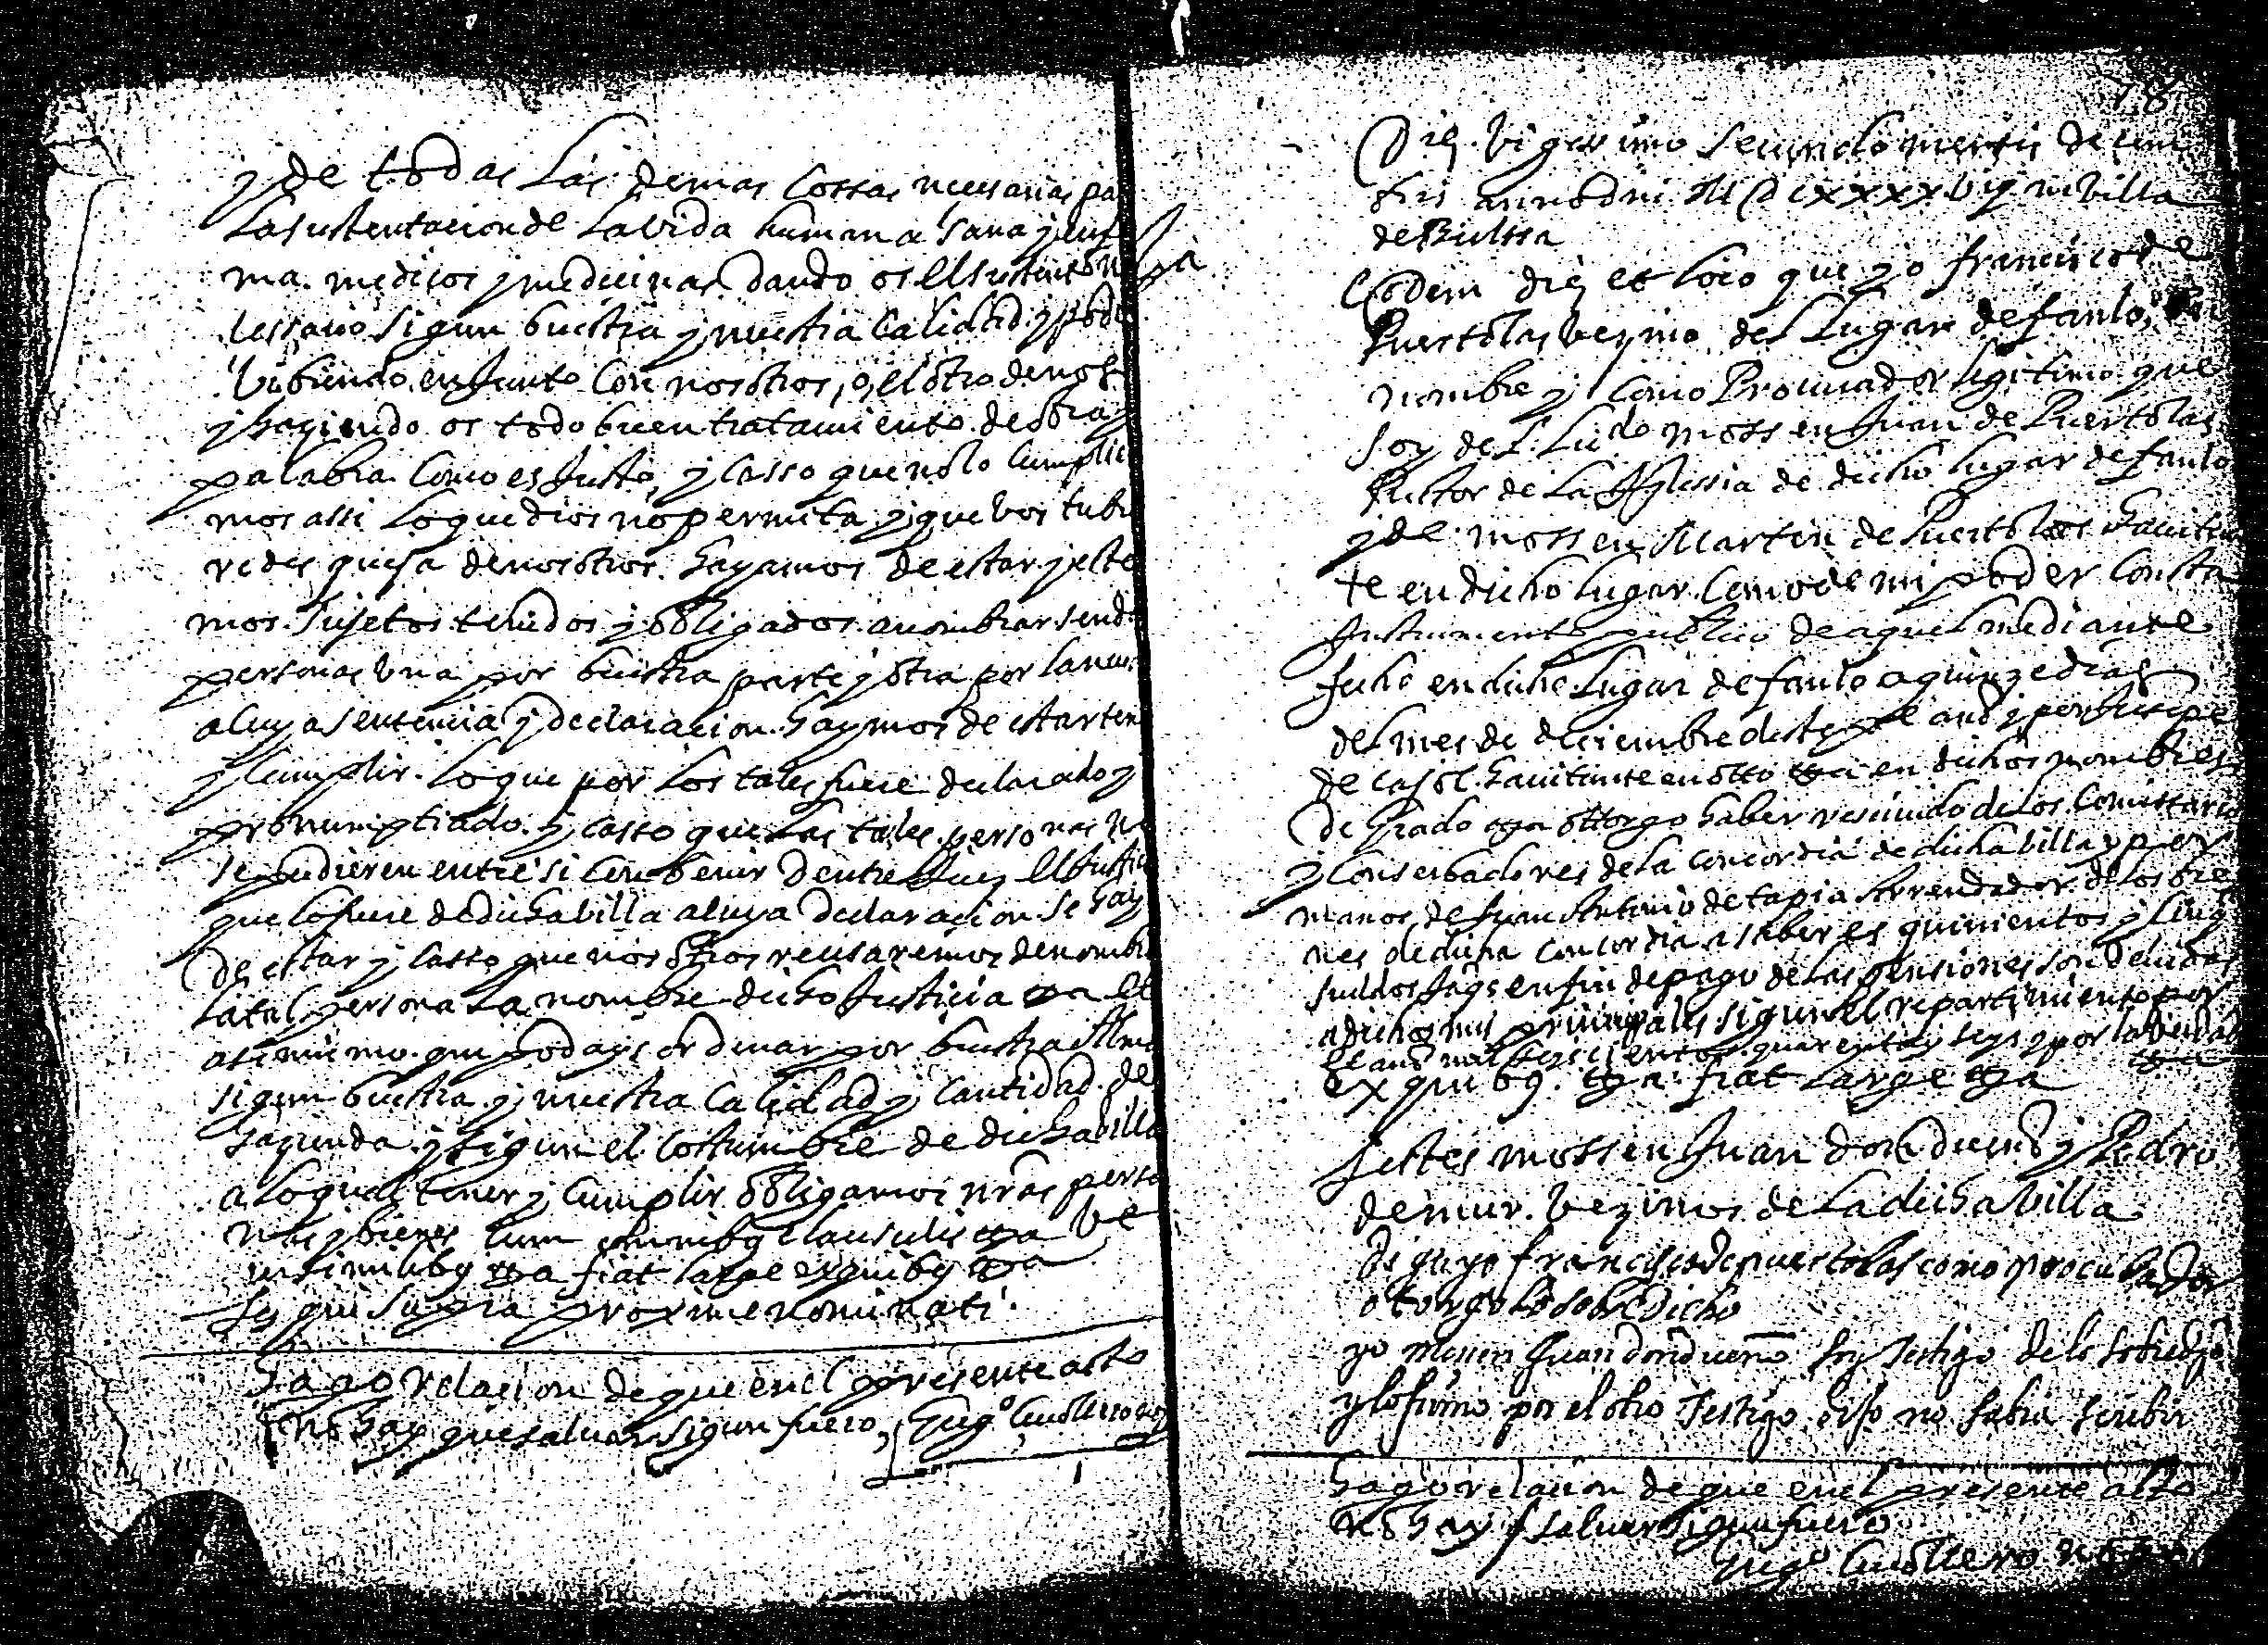 y de todas las demas cossas necesarias pa
la sustentacion de la vida humana sana y enf
ma. medicos y medicinas dando os el sustento ne
cessario sigun buestra y nuestra calidad y pode
bibiendo en junto con nosotros, o, el otro de nos
y haziendo os todo buen tratamiento de obra y
palabra como es justo, y casso que no lo cumplie
mos assi lo que dios no permita y que vos tubie
redes quexa de nosotros. hayamos de estar y este
mos. sujetos tenidos y obligados a nombrar send
personas una por buestra parte y otra por la nues
a cuya sentencia y declaracion. haymos de estar ten
y cumplir. lo que por los tales fuere declarado y
pronumptiado. y casso que las tales personas no
se pudieren entre si conbenir dentre el Justi
que lo fuere de dicha billa a cuya declaracion se hay
de estar y casso que nosotros recusaremos de nombr
la tal persona la nombre dicho Justicia etc a et
asimismo. que podays ordenar por buestra Alma
sigun buestra y nuestra calidad y cantidad de
hazienda. y sigun el costumbre de dicha billa
a lo qual tener y cumplir obligamos nras perso
nas y bienes cum omnibus clausulis
in similibus fiat large ex quibus
ts qui supra proxime nominati.
Hago relacion de que en el presente acto
no hay que saluar sigun fuero,
78
Die. vigessimo secundo mensis decem
bris anno dni MDCxxxxvij in villa
de Bielssa
Eodem die et loco que yo francisco de
Puertolas vezino del lugar de fanlo, en
nombre y como Procurador ligitimo que
soy del Licdo mossen Juan de Puertolas
Rector de la Iglessia de dicho lugar de fanlo
y de mossen Martin de Puertolas hauitan
te en dicho lugar. como de mi poder consta
Instrumento publico de aquel mediante
fecho en dicho lugar de fanlo a quinze dias
del mes de deciembre deste pnte año y por Jusepe
de Casol. hauitante en otto en dichos nombres
De Grado otorgo haber reciuido de los Comissarios
y Conserbadores de la Concordia de dicha billa y por
manos de Juan Antonio de tapia Arrendador de los bie
nes de dicha concordia a saber es quinientos y cinqta
sueldos Jaqs en fin de pago de las pensiones son deuidas
a dichos mis principales sigun el repartimiento por
el año mil seyscientos quarenta y seys y por la verdad
ex quibus. fiat large
Testes mossen Juan dondueño y Pedro
de mur. vezinos de la dicha villa
Digo yo francisco de puertolas como procurador
otorgo lo sobredicho
yo mossen Juan dondueño soy testigo de lo sobredho
y lo firmo por el otro Testigo dixo no sabia scribir
Hago relacion de que en el presente acto
no hay q saluar sigun fuero